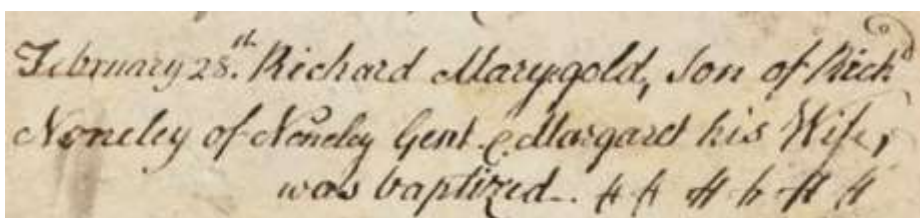 February 28.th Richard Marygold, Son of Rich.d
Noneley of Noneley Gent. & Margaret his Wife,
was baptized.